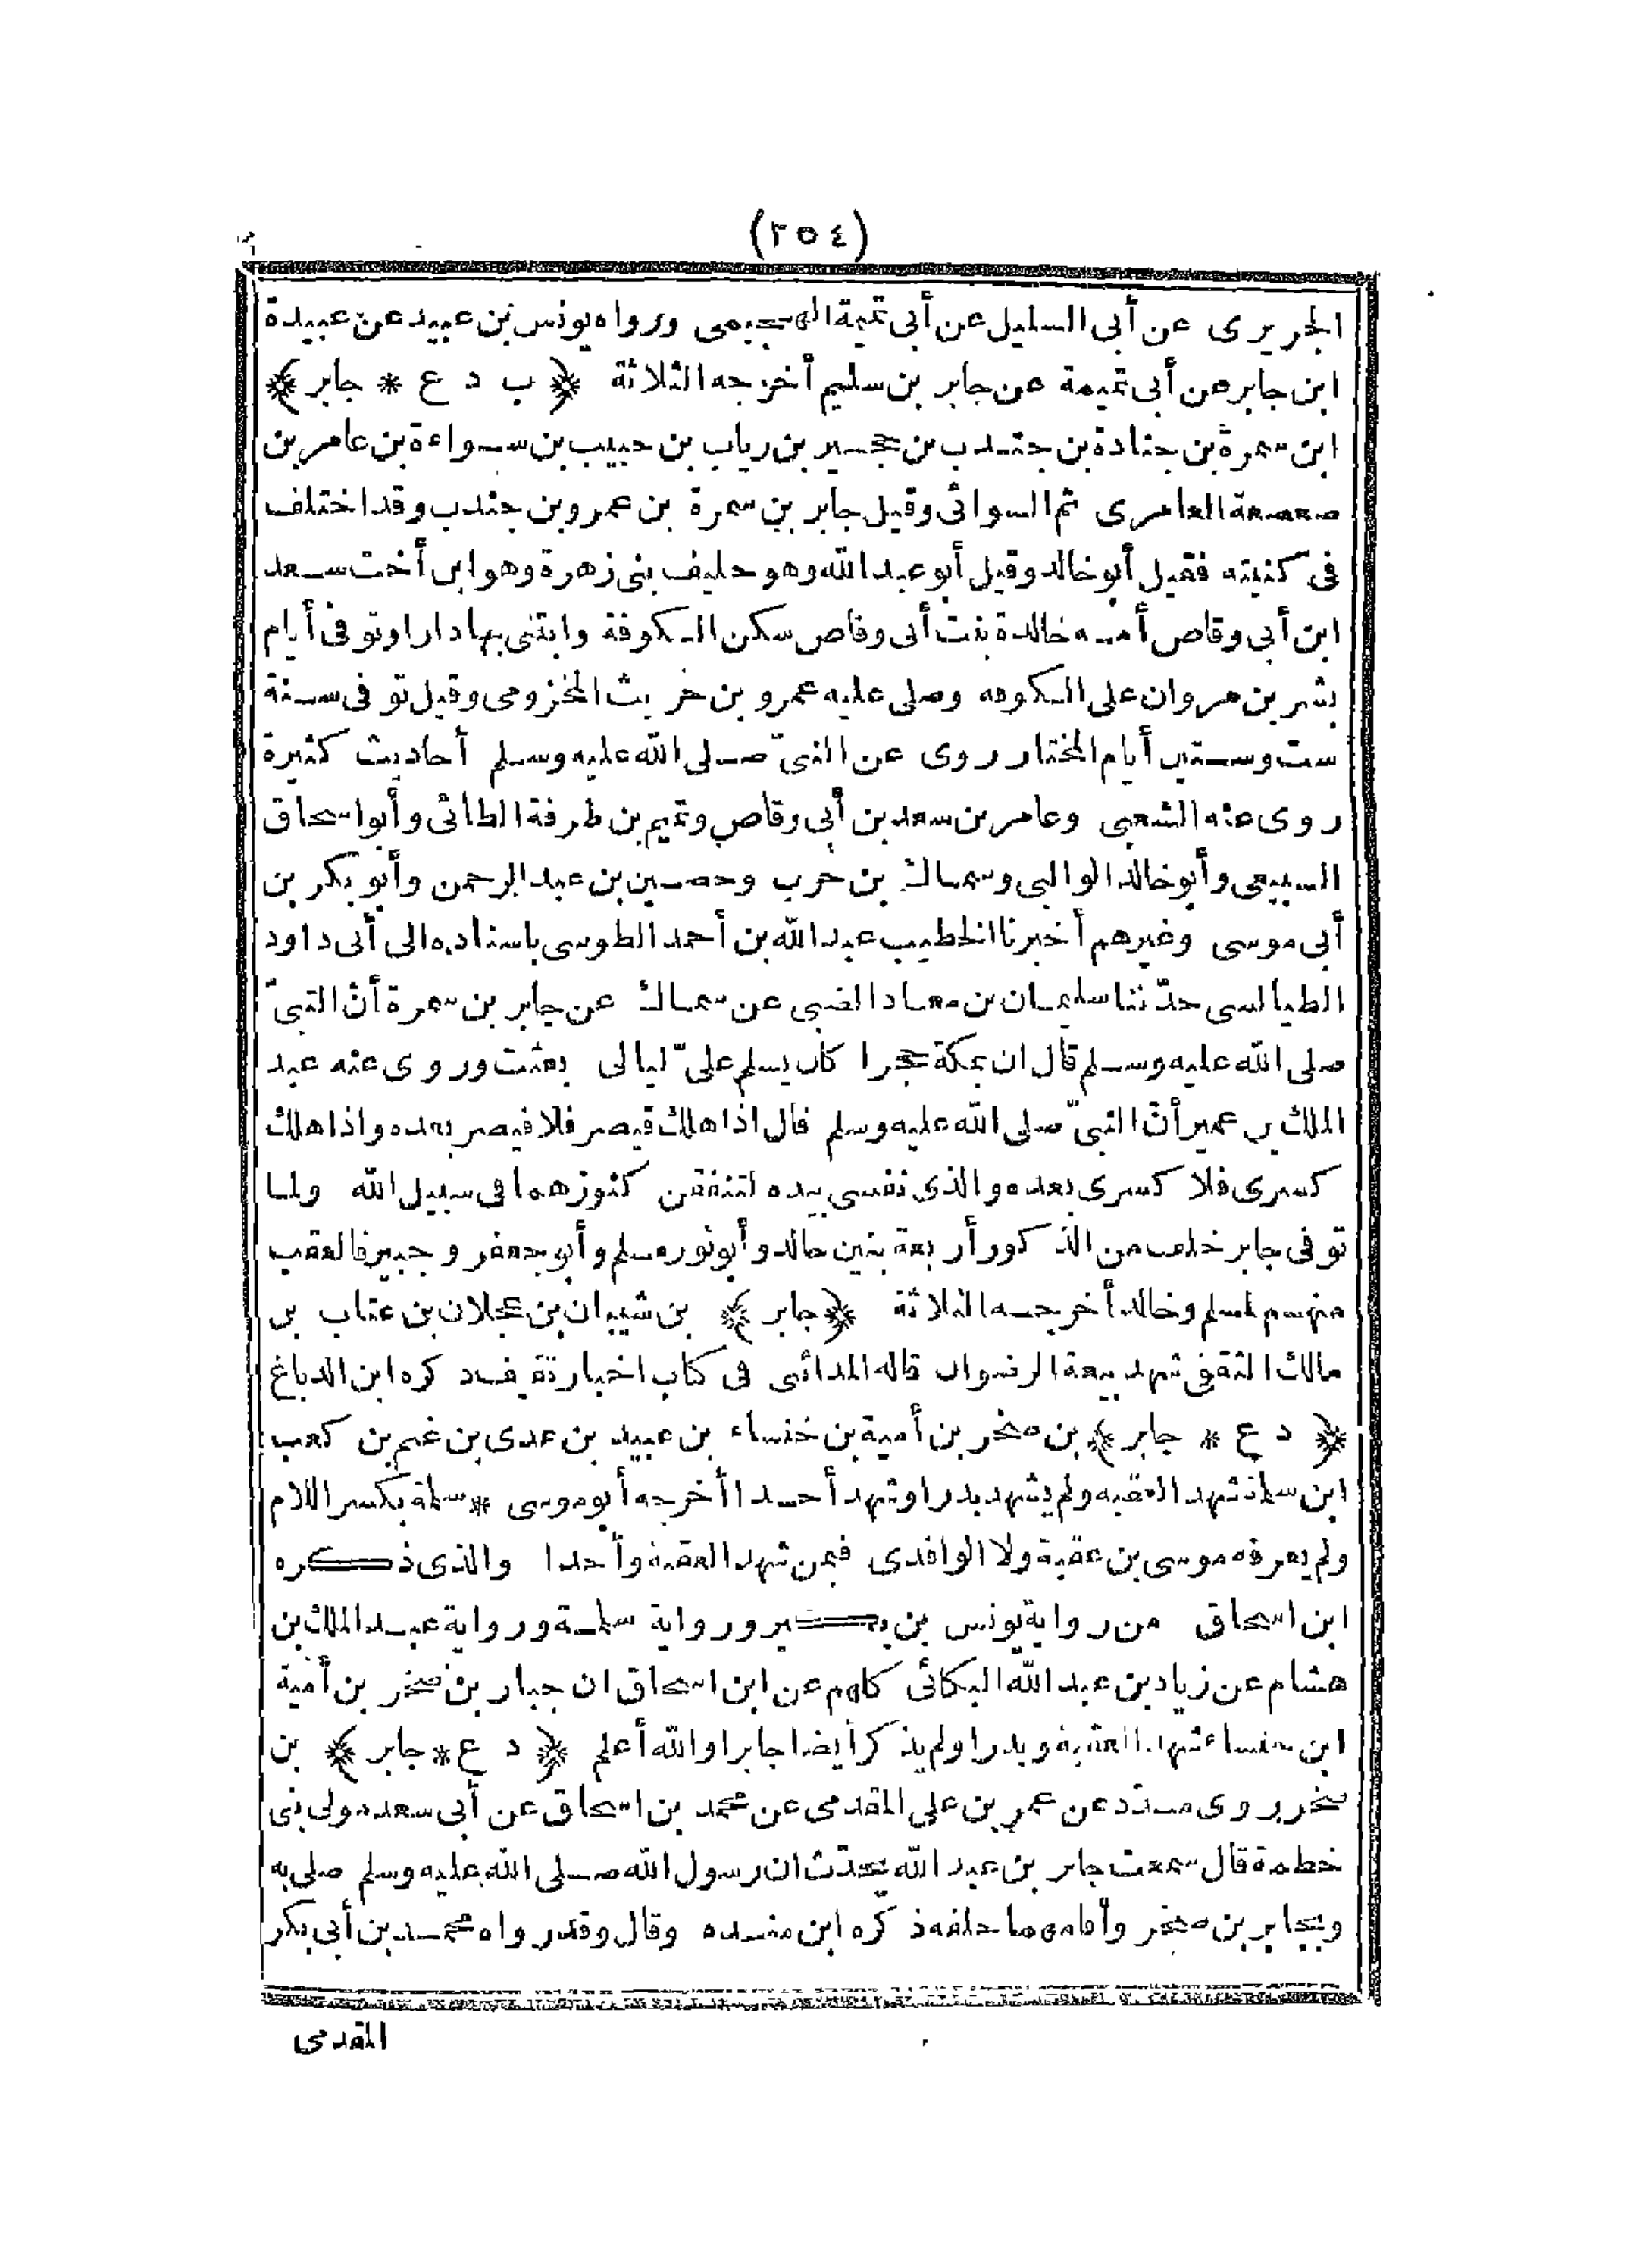 (٢٥٤)
الجريرى عن أبى السليل عن أبى تميمة الهجيمى ورواه يونس بن عبيد عن عبيدة
ابن جابر عن أبى تميمة عن جابر بن سليم أخرجه الثلاثة ﴿ ب د ع * جابر ﴾
ابن سمرة بن جنادة بن جندب بن حجير بن رياب بن حبيب بن سواءة بن عامر بن
صعصعة العامرى ثم السوائى وقيل جابر بن سمرة بن عمرو بن جندب وقد اختلف
فى كنيته فقيل أبو خالد وقيل أبو عبد الله وهو حليف بنى زهرة وهو ابن أخت سعد
ابن أبى وقاص أمه خالدة بنت أبى وقاص سكن الكوفة وابتنى بها دارا وتوفى أيام
بشر بن مروان على الكوفه وصلى عليه عمرو بن حريث المخزومى وقيل توفى سنة
ست وستين أيام المختار روى عن النبىّ صلى الله عليه وسلم أحاديث كثيرة
روى عنه الشعبى وعامر بن سعد بن أبى وقاص وتميم بن طرفة الطائى وأبو اسحاق
السبيعى وأبو خالد الوالبى وسماك بن حرب وحصين بن عبد الرحمن وأبو بكر بن
أبى موسى وغيرهم أخبرنا الخطيب عبد الله بن أحمد الطوسى باسناده الى أبى داود
الطيالسى حدّثنا سليمان بن معاذ الضبى عن سماك عن جابر بن سمرة أنّ النبىّ
صلى الله عليه وسلم قال ان بمكة حجرا كان يسلم علىّ ليالى بعثت وروى عنه عبد
الملك بن عمير أنّ النبىّ صلى الله عليه وسلم قال اذا هلك قيصر فلا قيصر بعده واذا هلك
كسرى فلا كسرى بعده والذى نفسى بيده لتنفقن كنوزهما فى سبيل الله ولما
توفى جابر خلف من الذكور أربعة بنين خالد وأبو ثور مسلم وأبو جعفر وجبير فالعقب
منهم لمسلم وخالد أخرجه الثلاثة ﴿جابر ﴾ بن شيبان بن عجلان بن عتاب بن
مالك الثقفى شهد بيعة الرضوان قاله المدائنى فى كتاب اخبار ثقيف ذكره ابن الدباغ
﴿ د ع * جابر ﴾ بن صخر بن أمية بن خنساء بن عبيد بن عدى بن غنم بن كعب
ابن سلمة شهد العقبه ولم يشهد بدرا وشهد أحدا أخرجه أبو موسى * سلمة بكسر اللام
ولم يعرفه موسى بن عقبة ولا الواقدى فيمن شهد العقبة وأحدا والذى ذكره
ابن اسحاق من رواية يونس بن بكير ورواية سلمة ورواية عبد الملك بن
هشام عن زياد بن عبد الله البكائى كلهم عن ابن اسحاق ان جبار بن صخر بن أمية
ابن خنساء شهد العقبة وبدرا ولم يذكر أيضا جابرا والله أعلم ﴿ د ع * جابر ﴾ بن
صخر روى مسدّد عن عمر بن على المقدمى عن محمد بن اسحاق عن أبى سعد مولى بنى
خطمة قال سمعت جابر بن عبد الله يحدّث ان رسول الله صلى الله عليه وسلم صلى به
وبجابر بن صخر وأقامهما خلفه ذكره ابن منده وقال وقد رواه محمد بن أبى بكر
المقدمى